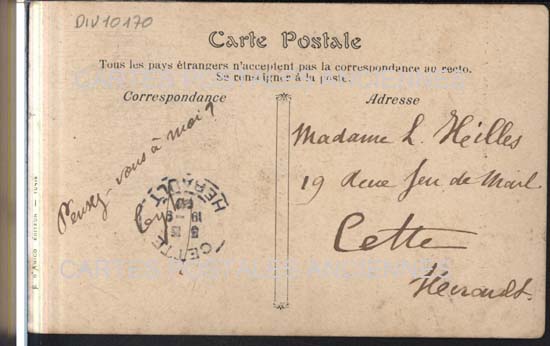 DIV10170
Carte Postale
Tous les pays étrangers n'acceptent pas la correspondance au recto.
Se renseigner à la poste.
Correspondance
Adresse
Pensez-vous à moi ?
Madame L. Heilles
19 Rue Jeu de Mail
Cette
Hérault.
CETTE
HERAULT
CARTES POSTALES ANCIENNES
D'AMICO EDITEUR — TUNIS